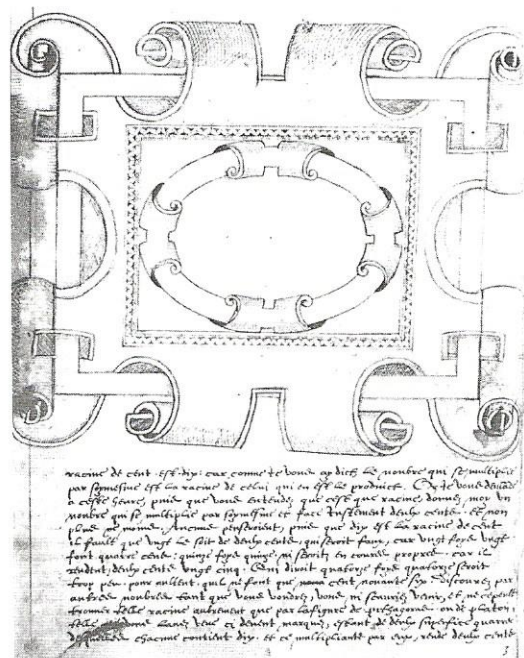 racine de cent est dix: car comme Je vous ay dict, Le nombre qui se multiplie
par soymesme est la racine de celui qui en est le produict. Or Je vous demande
a ceste heure, puis que vous entendez que cest que racine, donnez moy un
nombre qui se multiplie par soymesme et face Justement deulx cents: et non
plus ne moins. Aucuns penseroient, puis que dix est la racine de cent
il fault que vingt le soit de deulx cents: qui seroit faux, car vingt foys vingt
font quatre cents: quinze foys quinze ni seroit, en propre: car il
rendent deulx cents vingt cinq. Qui diroit quatorze foys quatorze seroit
trop peu: pour aultant quilz ne font que cent nonante six. Discourez par
autres nombres tant que vous vouldrez, vous ni sauriez venir, et ne se peult
trouver telle racine autrement que par la figure de pithagoras: ou de platon,
telle vous lavez veue ci devant marquee, estant de deulx superfices quarrees
desquelles chacune contient dix. et ce multipliants par eux, rende deulx cents
3